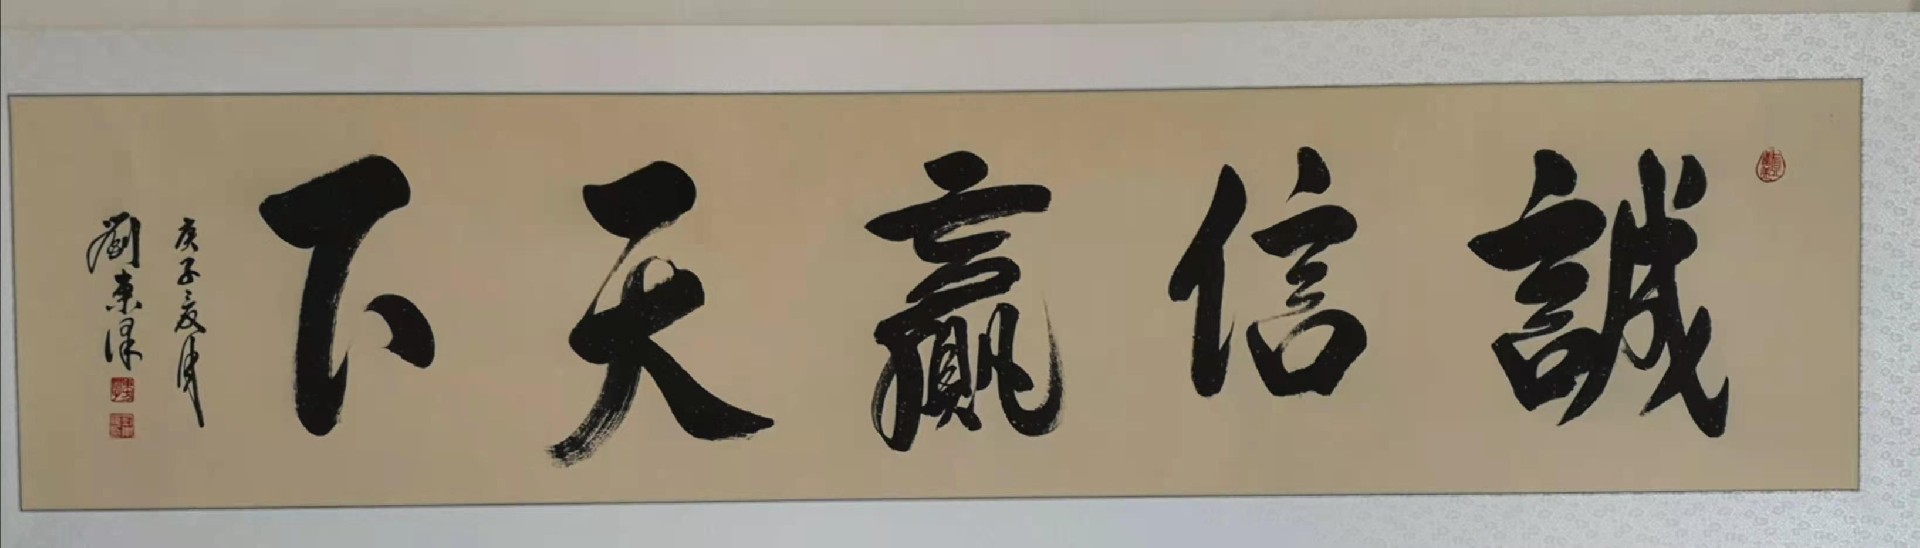 誠信贏天下
庚子夏月
劉東澤